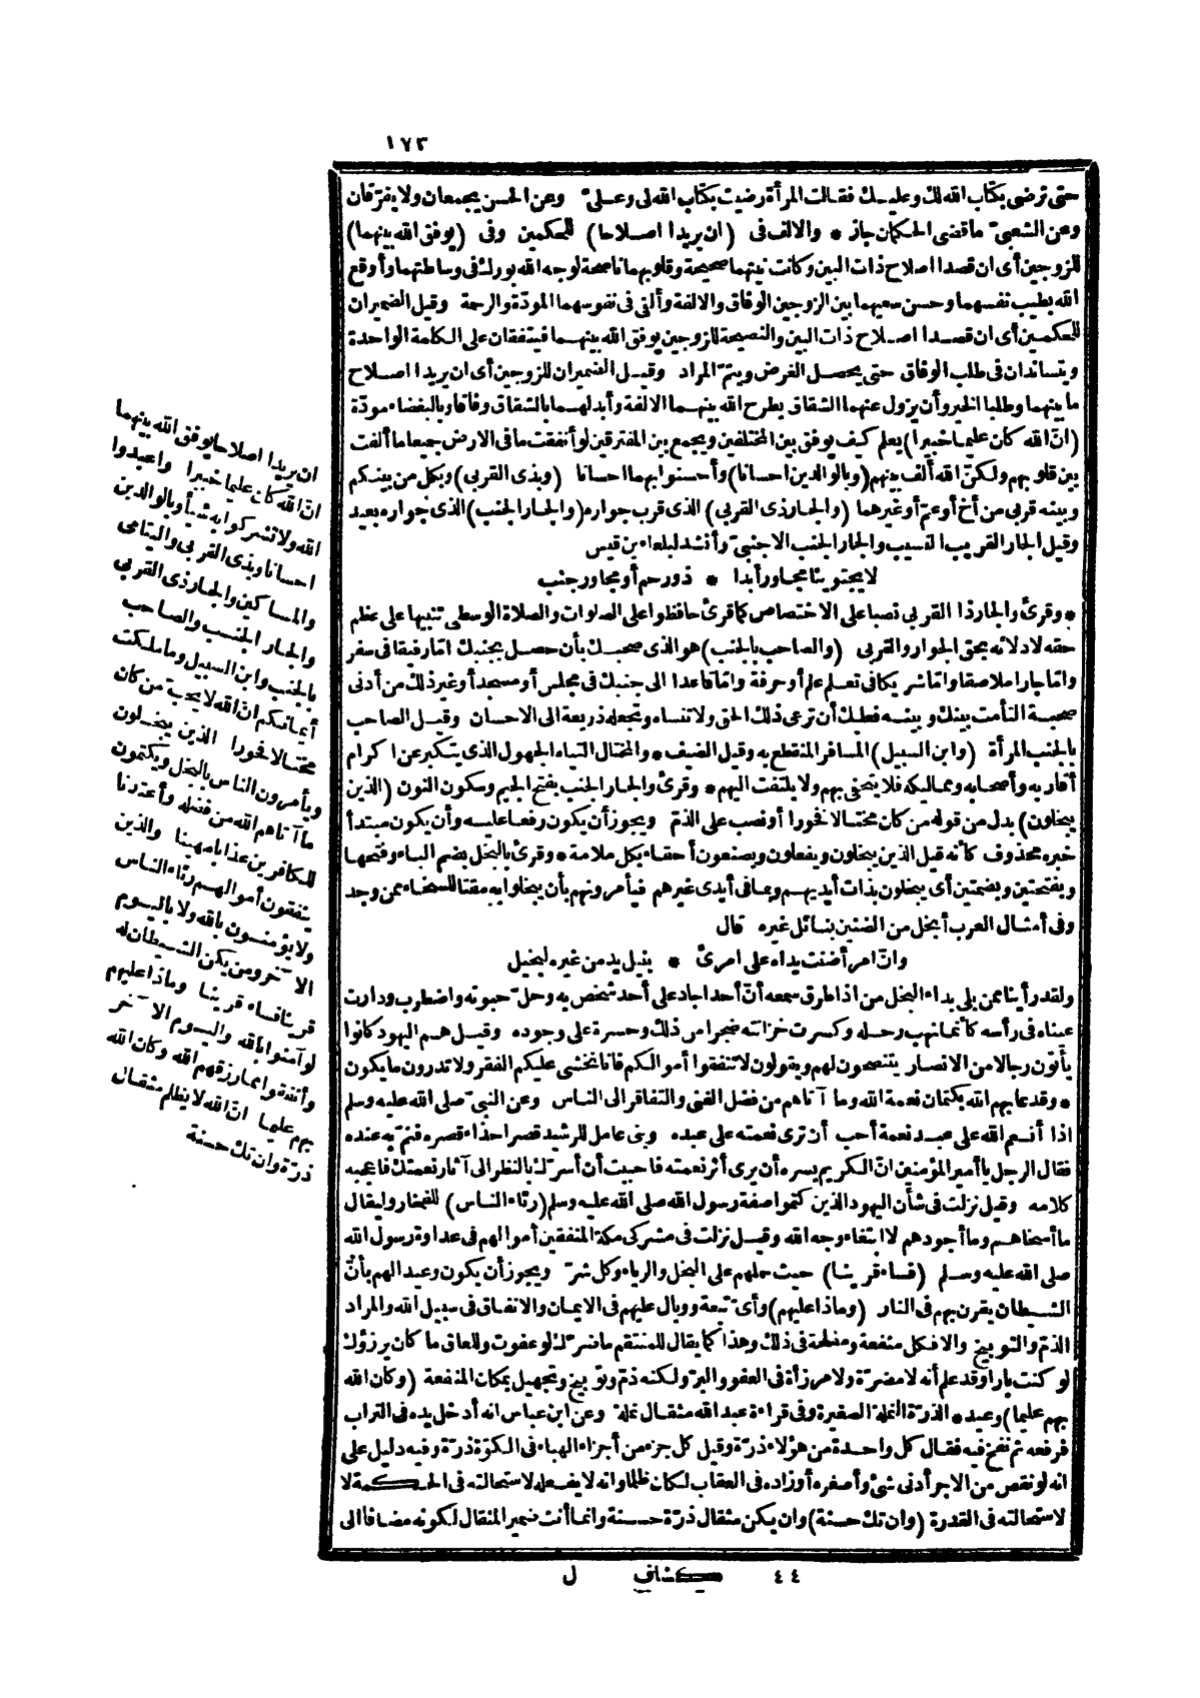 ١٧٣
حتى ترضى بكتاب الله لك وعليك فقالت المرأة رضيت بكتاب الله لى وعلىّ وعن الحسن يجمعان ولا يفرّقان
وعن الشعبىّ ما قضى الحكمان جاز * والالف فى (ان يريدا اصلاحا) للحكمين وفى (يوفق الله بينهما)
للزوجين أى ان قصدا اصلاح ذات البين وكانت نيتهما صحيحة وقلوبهما ناصحة لوجه الله بورك فى وساطتهما وأوقع
الله بطيب نفسهما وحسن سعيهما بين الزوجين الوفاق والالفة وألقى فى نفوسهما المودّة والرحمة وقيل الضميران
للحكمين أى ان قصدا اصلاح ذات البين والنصيحة للزوجين يوفق الله بينهما فيتفقان على الكلمة الواحدة
ويتساندان فى طلب الوفاق حتى يحصل الغرض ويتمّ المراد وقيل الضميران للزوجين أى ان يريدا اصلاح
ما بينهما وطلبا الخير وأن يزول عنهما الشقاق يطرح الله بينهما الالفة وأبدلهما بالشقاق وفاقا وبالبغضاء مودّة
(انّ الله كان عليما خبيرا) يعلم كيف يوفق بين المختلفين ويجمع بين المفترقين لو أنفقت ما فى الارض جميعا ما ألفت
بين قلوبهم ولكنّ الله ألف بينهم (وبالوالدين احسانا) وأحسنوا بهما احسانا (وبذى القربى) وبكل من بينكم
وبينه قربى من أخ أو عمّ أو غيرهما (والجار ذى القربى) الذى قرب جواره (والجار الجنب) الذى جواره بعيد
وقيل الجار القريب النسيب والجار الجنب الاجنبىّ وأنشد لبلعاء بن قيس
لا يجتوينا مجاور أبدا * ذو رحم أو مجاور جنب
* وقرئ والجار ذا القربى نصبا على الاختصاص كما قرئ حافظوا على الصلوات والصلاة الوسطى تنبيها على عظم
حقه لادلائه بحق الجوار والقربى (والصاحب بالجنب) هو الذى صحبك بأن حصل بجنبك امّا رفيقا فى سفر
وامّا جارا ملاصقا وامّا شريكا فى تعلم علم أو حرفة وامّا قاعدا الى جنبك فى مجلس أو مسجد أو غير ذلك من أدنى
صحبة التأمت بينك وبينه فعليك أن ترعى ذلك الحق ولا تنساه وتجعله ذريعة الى الاحسان وقيل الصاحب
بالجنب المرأة (وابن السبيل) المسافر المنقطع به وقيل الضيف * والمختال التياه الجهول الذى يتكبر عن اكرام
أقاربه وأصحابه ومماليكه فلا يتحفى بهم ولا يلتفت اليهم * وقرئ والجار الجنب بفتح الجيم وسكون النون (الذين
يبخلون) بدل من قوله من كان مختالا فخورا أو نصب على الذمّ ويجوز أن يكون رفعا عليه وأن يكون مبتدأ
خبره محذوف كأنه قيل الذين يبخلون ويفعلون ويصنعون أحقاء بكل ملامة * وقرئ بالبخل بضم الباء وفتحها
وبفتحتين وبضمتين أى يبخلون بذات أيديهم وبما فى أيدى غيرهم فيأمرونهم بأن يبخلوا به مقتا للسخاء ممن وجد
وفى أمثال العرب أبخل من الضنين بنائل غيره قال
وانّ امرأ ضنت يداه على امرئ * بنيل يد من غيره لبخيل
ولقد رأينا ممن بلى بداء البخل من اذا طرق سمعه أنّ أحدا جاد على أحد شخص به وحلّ حبوته واضطرب ودارت
عيناه فى رأسه كأنما نهب رحله وكسرت خزانته ضجرا من ذلك وحسرة على وجوده وقيل هم اليهود كانوا
يأتون رجالا من الانصار يتنصحون لهم ويقولون لا تنفقوا أموالكم فانا نخشى عليكم الفقر ولا تدرون ما يكون
* وقد عابهم الله بكتمان نعمة الله وما آتاهم من فضل الغنى والتفاقر الى الناس وعن النبىّ صلى الله عليه وسلم
اذا أنعم الله على عبد نعمة أحب أن ترى نعمته على عبده وبنى عامل للرشيد قصرا حذاء قصره فنمّ به عنده
فقال الرجل يا أمير المؤمنين انّ الكريم يسره أن يرى أثر نعمته فأحببت أن أسرّك بالنظر الى آثار نعمتك فأعجبه
كلامه وقيل نزلت فى شأن اليهود الذين كتموا صفة رسول الله صلى الله عليه وسلم (رئاء الناس) للفخار وليقال
ما أسخاهم وما أجودهم لا ابتغاء وجه الله وقيل نزلت فى مشركى مكة المنفقين أموالهم فى عداوة رسول الله
صلى الله عليه وسلم (فساء قرينا) حيث حملهم على البخل والرياء وكل شرّ ويجوز أن يكون وعيدا لهم بأنّ
الشيطان يقرن بهم فى النار (وماذا عليهم) وأىّ تبعة ووبال عليهم فى الايمان والانفاق فى سبيل الله والمراد
الذمّ والتوبيخ والا فكل منفعة ومفلحة فى ذلك وهذا كما يقال للمنتقم ما ضرّك لو عفوت وللعاق ما كان يرزؤك
لو كنت بارا وقد علم أنه لا مضرّة ولا مرزأة فى العفو والبرّ ولكنه ذمّ وتوبيخ وتجهيل بمكان المنفعة (وكان الله
بهم عليما) وعيد * الذرّة النملة الصغيرة وفى قراءة عبد الله مثقال نملة وعن ابن عباس انه أدخل يده فى التراب
فرفعه ثم نفخ فيه فقال كل واحدة من هؤلاء ذرّة وقيل كل جزء من أجزاء الهباء فى الكوّة ذرّة وفيه دليل على
انه لو نقص من الاجر أدنى شئ وأصغره أو زاده فى العقاب لكان ظلما وانه لا يفعله لاستحالته فى الحكمة لا
لاستحالته فى القدرة (وان تك حسنة) وان يكن مثقال ذرّة حسنة وانما أنث ضمير المثقال لكونه مضافا الى
ان يريدا اصلاحا يوفق الله بينهما
انّ الله كان عليما خبيرا واعبدوا
الله ولا تشركوا به شيأ وبالوالدين
احسانا وبذى القربى واليتامى
والمساكين والجار ذى القربى
والجار الجنب والصاحب
بالجنب وابن السبيل وما ملكت
أيمانكم انّ الله لا يحب من كان
مختالا فخورا الذين يبخلون
ويأمرون الناس بالبخل ويكتمون
ما آتاهم الله من فضله وأعتدنا
للكافرين عذابا مهينا والذين
ينفقون أموالهم رئاء الناس
ولا يؤمنون بالله ولا باليوم
الآخر ومن يكن الشيطان له
قرينا فساء قرينا وماذا عليهم
لو آمنوا بالله واليوم الآخر
وأنفقوا مما رزقهم الله وكان الله
بهم عليما انّ الله لا يظلم مثقال
ذرّة وان تك حسنة
٤٤ كشاف ل